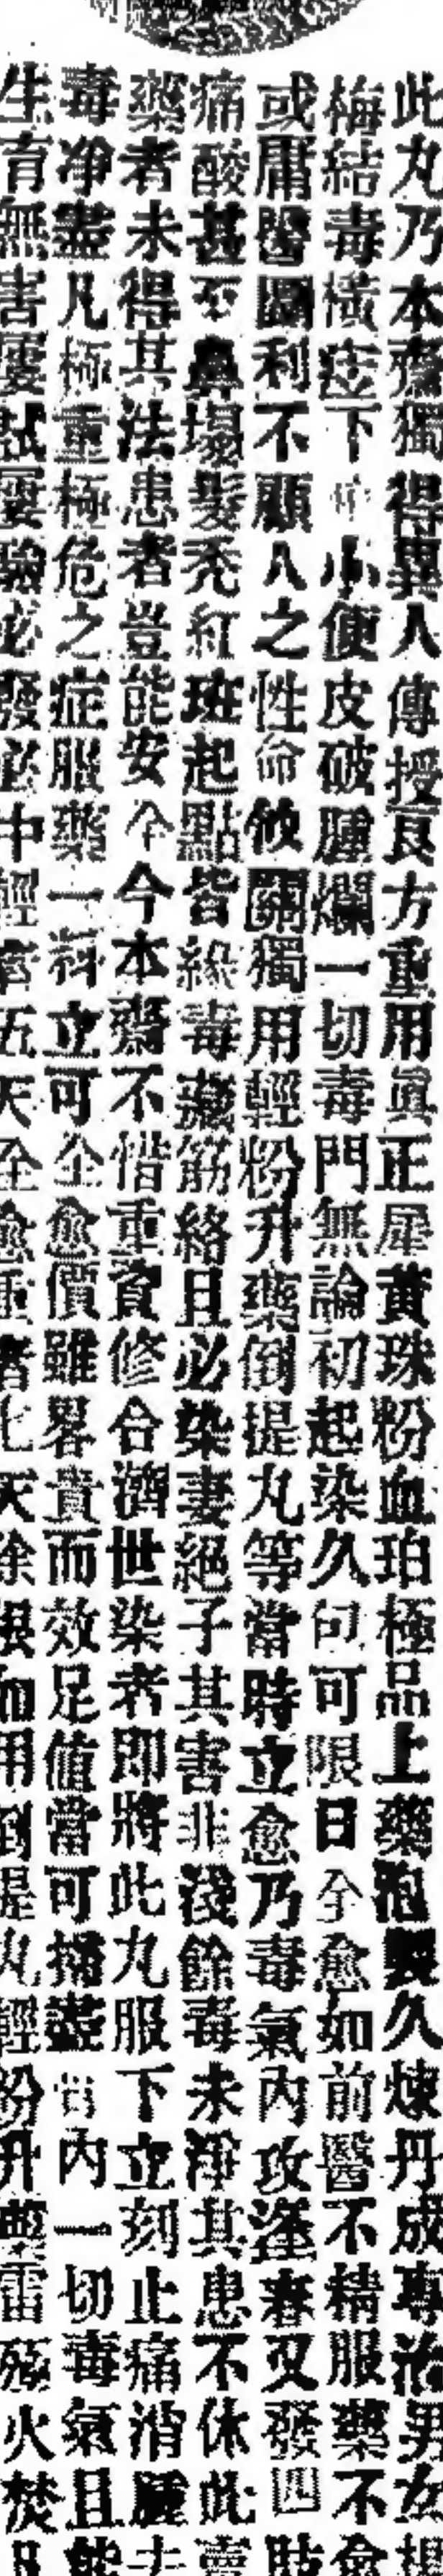 此丸乃本齋獨得異人傳授良方重用眞正犀黃珠粉血珀極品上藥泡製久煉丹成專治男女楊
梅結毒橫痃下疳小便皮破腫爛一切毒門無論初起染久包可限日全愈如前醫不精服藥不合
或庸醫圖利不顧人之性命攸關獨用輕粉升藥倒提丸等當時立愈乃毒氣內攻逢春又發四肢
痛酸甚至鼻塌髮禿紅班起點皆緣毒藏筋絡且必染妻絕子其害非淺餘毒未淨其患不休此賣
藥者未得其法患者豈能安全今本齋不惜重資修合濟世染者即將此丸服下立刻止痛消腫去
毒净盡凡極重極危之症服藥一料立可全愈價雖畧貴而效足值當可掃盡骨內一切毒氣且能
生育無害屢試屢驗必發必中輕者五天全愈重者七天除根如用倒提丸輕粉升藥雷殛火焚